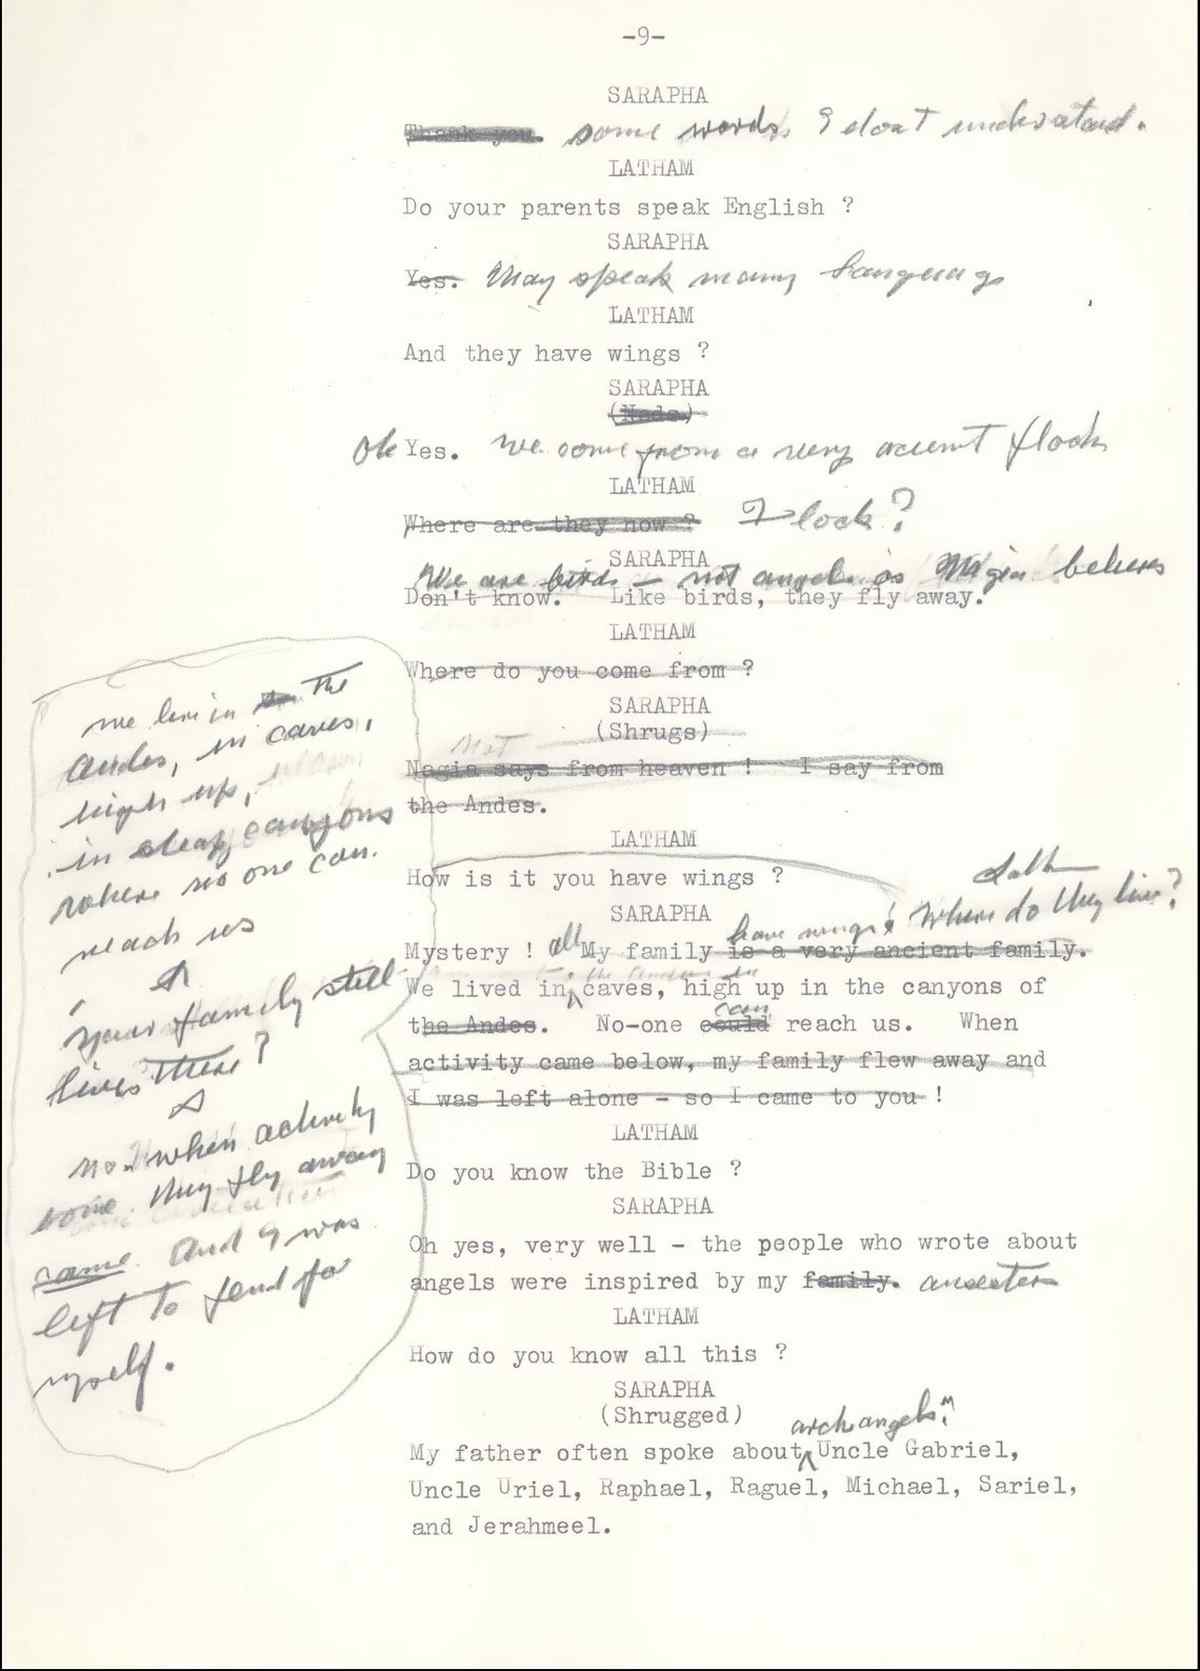 -9-
SARAPHA
Thank you. some words I don't understand.
LATHAM
Do your parents speak English ?
SARAPHA
Yes. They speak many languags
LATHAM
And they have wings ?
SARAPHA
(Nods.)
Ok Yes. We come from a very acient flock
LATHAM
Where are they now ? Flock?
SARAPHA
We are birds - not angels as Magia believes
Don't know. Like birds, they fly away.
LATHAM
Where do you come from ?
SARAPHA
(Shrugs)
Not
Magia says from heaven ! I say from
the Andes.
LATHAM
How is it you have wings ?
SARAPHA
have wings! Where do they live?
Mystery ! all My family is a very ancient family.
We lived in caves, high up in the canyons of
can
the Andes. No-one could reach us. When
activity came below, my family flew away and
I was left alone - so I came to you !
LATHAM
Do you know the Bible ?
SARAPHA
Oh yes, very well - the people who wrote about
angels were inspired by my family. ancestors
LATHAM
How do you know all this ?
SARAPHA
(Shrugged)
archangels
My father often spoke about Uncle Gabriel,
Uncle Uriel, Raphael, Raguel, Michael, Sariel,
and Jerahmeel.
we live in the
Andes, in caves,
high up,
in steap canyons
where no one can
reach us
your family still
lives there?
no. when activity
came they fly away
came. And I was
left to fend for
myself.